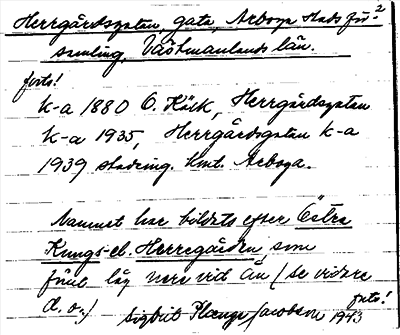 Herrgårdsgatan, gata, Arboga stads för- 2
samling, Västmanlands län.
forts!
k-a 1880 O. Körk, Herrgårdsgatan
k-a 1935, Herrgårdsgatan k-a
1939 stadsing. knt. Arboga.
Namnet har bildats efter Östra
Kungs-el. Herregården, som
förut låg nere vid ån (se vidare
d. o.) forts!
Sigbrit Plænge Jacobson 1943